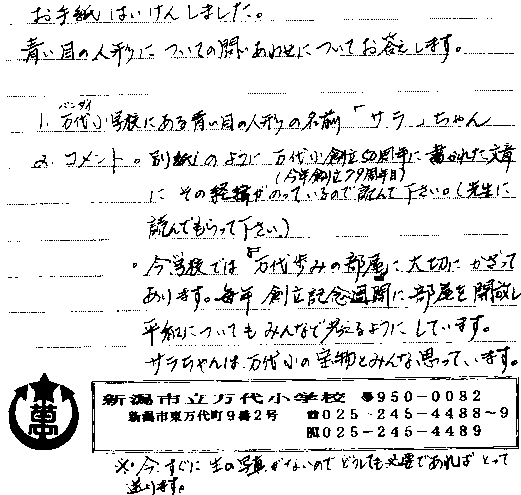 お手紙はいけんしました。
青い目の人形についての問いあわせについてお答えします。
バンダイ
1. 万代小学校にある青い目の人形の名前「サラ」ちゃん
2. コメント。別紙のように 万代小創立50周年に書かれた文章
(今年創立79周年目)
にその経播がのっているので読んで下さい。(先生に
読んでもらって下さい)
。今学校では"万代歩みの部屋"に大切にかざって
あります。毎年 創立記念週間に部屋を開放し
平和についてもみんなで考えるようにしています。
サラちゃんは万代小の宝物とみんな思っています。
新潟市立万代小学校 〒950-0082
新潟市東万代町9番2号 ☎025-245-4488〜9
FAX 025-245-4489
萬中
※今すぐに生の写真がないのでどうしても必要であればとって
送ります。